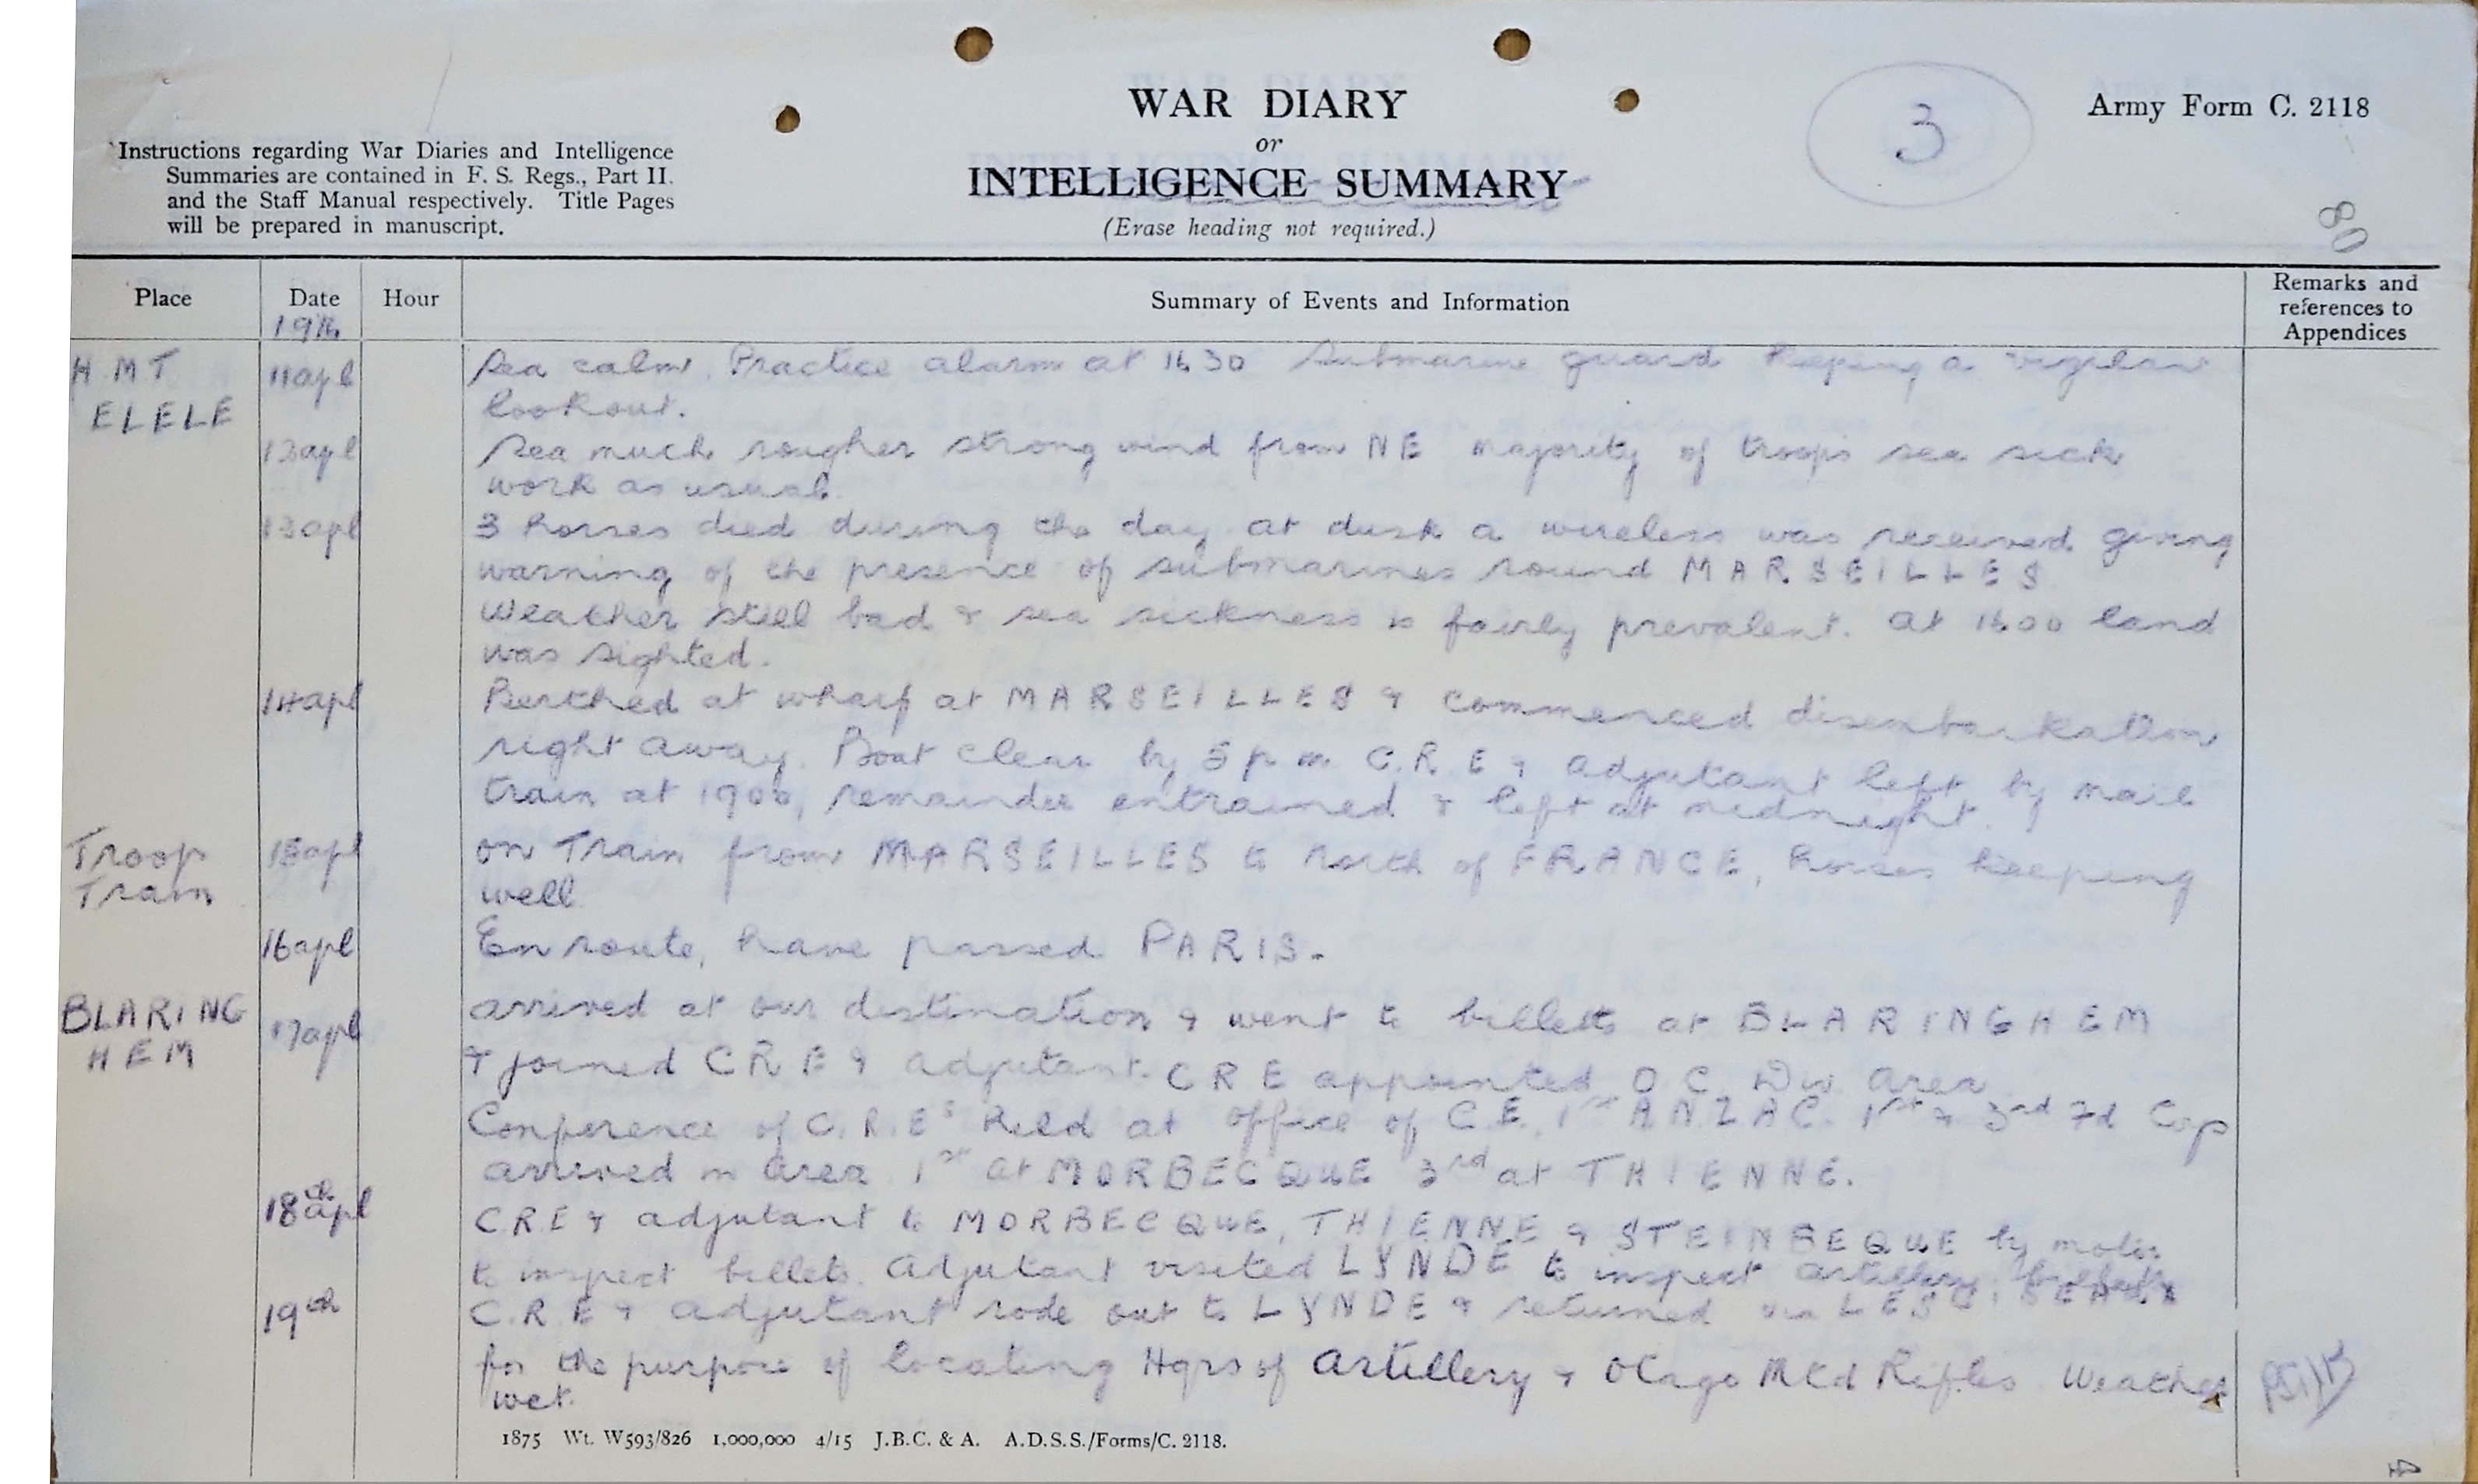 WAR DIARY
or
INTELLIGENCE SUMMARY
(Erase heading not required.)
3
Army Form C. 2118
80
Instructions regarding War Diaries and Intelligence
Summaries are contained in F. S. Regs., Part II.
and the Staff Manual respectively. Title Pages
will be prepared in manuscript.
Place
Date
1916
Hour
Summary of Events and Information
Remarks and
references to
Appendices
H.M.T
ELELE
11 apl
Sea calm. Practice alarm at 1630 Submarine guard keeping a vigilant
lookout.
12 apl
Sea much rougher strong wind from NE majority of troops sea sick
work as usual.
13 apl
3 horses died during the day at dusk a wireless was received giving
warning of the presence of submarines round MARSEILLES
Weather still bad & sea sickness is fairly prevalent. at 1600 land
was sighted.
14 apl
Berthed at wharf at MARSEILLES & commenced disembarkation
right away. Boat clear by 5 p m C.R.E & adjutant left by mail
train at 1900, remainder entrained & left at midnight.
Troop
Train
15 apl
on Train from MARSEILLES to North of FRANCE, horses keeping
well
16 apl
En route, have passed PARIS.
BLARING
HEM
17 apl
arrived at our destination & went to billets at BLARINGHEM
& joined C R E & adjutant. C R E appointed O C Div area
Conference of C.R.Es held at office of C.E. 1st ANZAC. 1st & 3rd Fd Coy
arrived in area 1st at MORBECQUE 3rd at THIENNE.
18th apl
C.R.E & adjutant to MORBECQUE, THIENNE & STEINBEQUE by motor
to inspect billets. Adjutant visited LYNDE to inspect artillery billets
19th
C.R.E & adjutant rode out to LYNDE & returned via
for the purpose of locating Hqrs of Artillery & Otago Mtd Rifles Weather
wet.
1875 Wt. W593/826 1,000,000 4/15 J.B.C. & A. A.D.S.S./Forms/C. 2118.
4